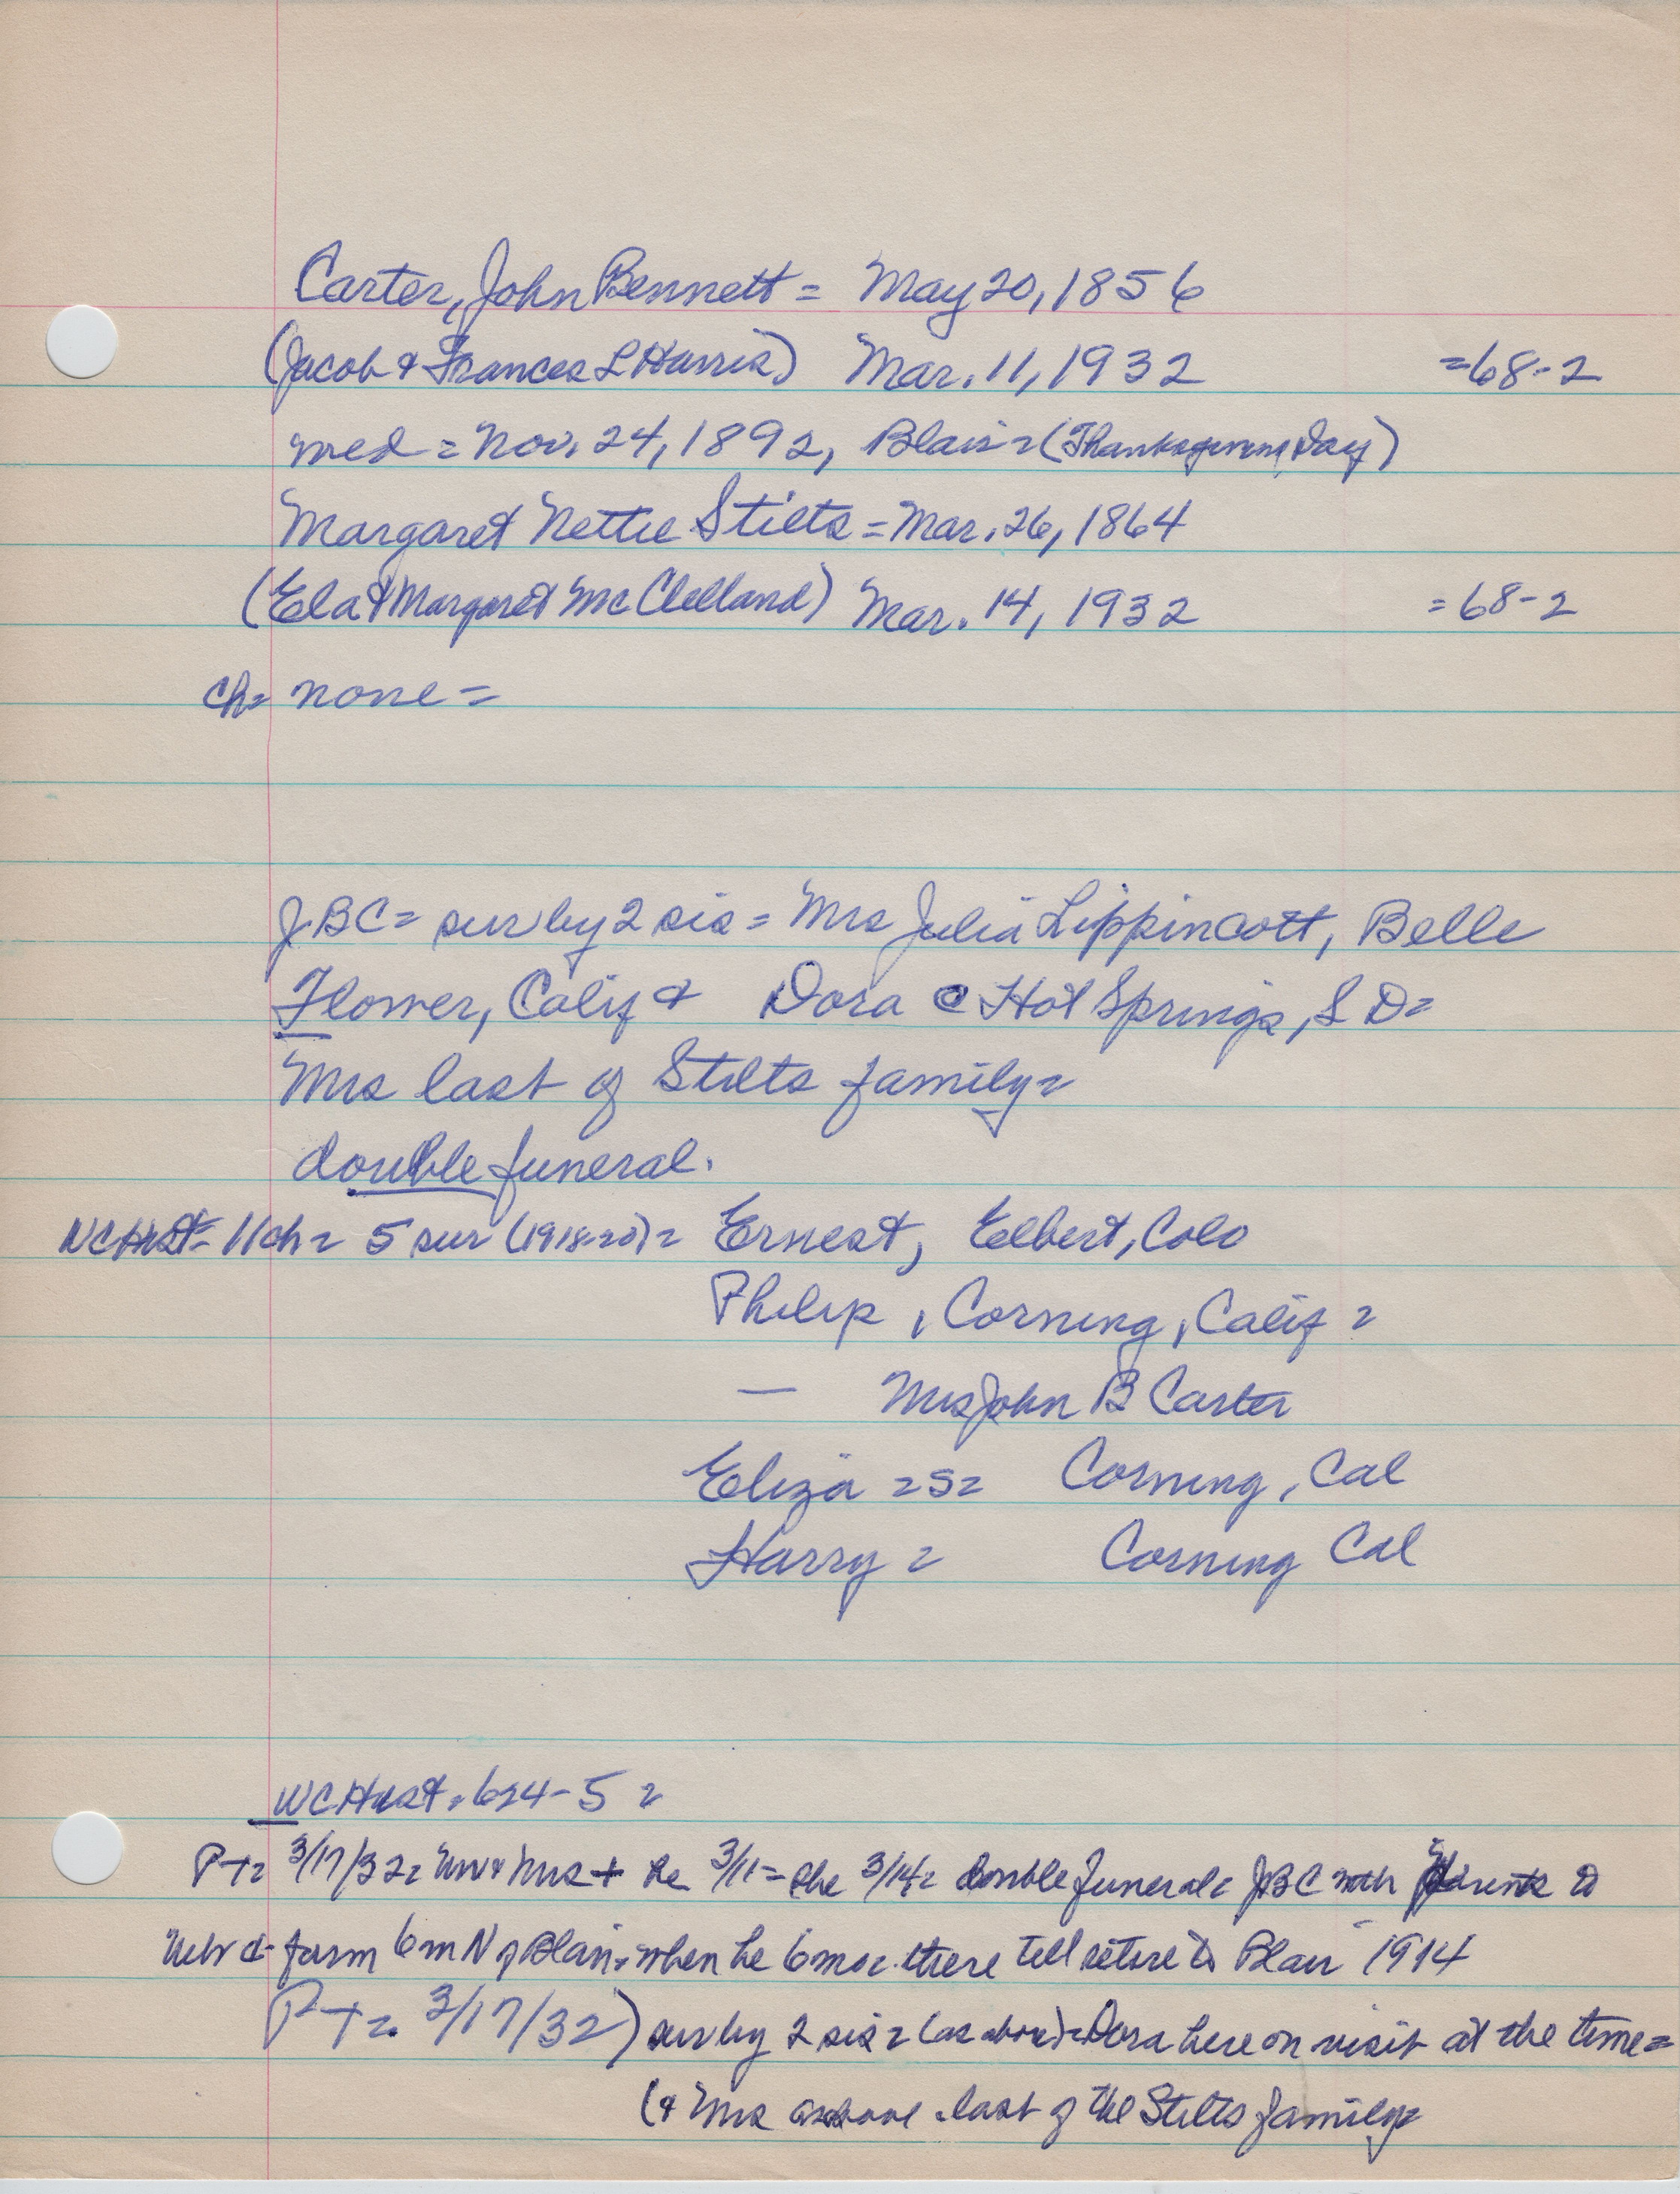 Carter, John Bennett = May 20, 1856
(Jacob & Frances L Harris) Mar. 11, 1932 = 68-2
med = Nov. 24, 1892, Blair = (Thanksgiving Day)
Margaret Nettie Stilts = Mar. 26, 1864
(Ela & Margaret McClelland) Mar. 14, 1932 = 68-2
ch = none =
JBC = sur by 2 sis = Mrs Julia Lippincott, Belle
Flower, Calif & Dora C Hot Springs, S D =
Mrs last of Stilts family =
double funeral.
WC Hist = 11 ch = 5 sur (1918-20) = Ernest, Elbert, Colo
Philip, Corning, Calif =
— Mrs John B Carter
Eliza = S = Corning, Cal
Harry = Corning Cal
WC Hist. 624-5 =
PT = 3/17/32 = Mr & Mrs + he 3/11 = she 3/14 = double funeral = JBC with parents to
farm 6 m N of Blair = when he 6 mo = there till retire to Blair 1914
PT = 3/17/32) sur by 2 sis = (as above) = Dora here on visit at the time =
(& Mrs as above last of the Stilts family =